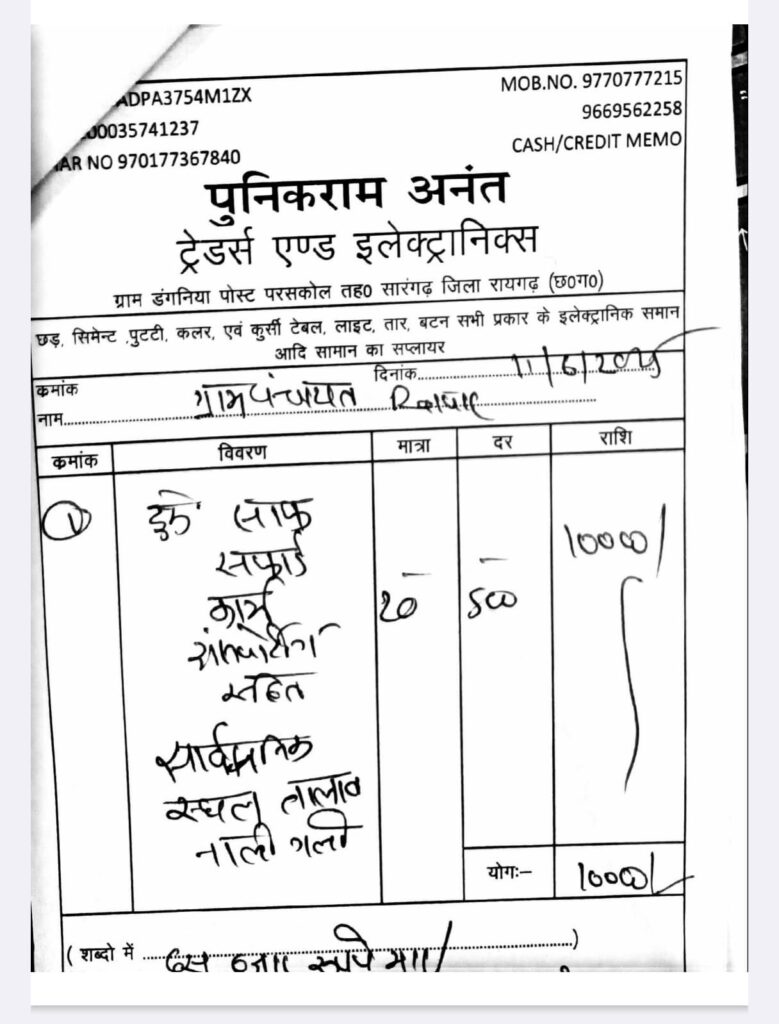 ADPA3754M1ZX
MOB.NO. 9770777215
00035741237
9669562258
AR NO 970177367840
CASH/CREDIT MEMO
पुनिकराम अनंत
ट्रेडर्स एण्ड इलेक्ट्रानिक्स
ग्राम डंगनिया पोस्ट परसकोल तह0 सारंगढ़ जिला रायगढ़ (छ0ग0)
छड़, सिमेन्ट ,पुटटी, कलर, एवं कुर्सी टेबल, लाइट, तार, बटन सभी प्रकार के इलेक्ट्रानिक समान
आदि सामान का सप्लायर
कमांक दिनांक 11/6/2025
नाम ग्राम पंचायत
कमांक विवरण मात्रा दर राशि
1 साफ 10000/
सफाई
कार्य 20 500
सहित
सार्वजनिक
स्थल तालाब
नाली गली
योगः– 10000/
( शब्दो में दस हजार रूपये मात्र/ )